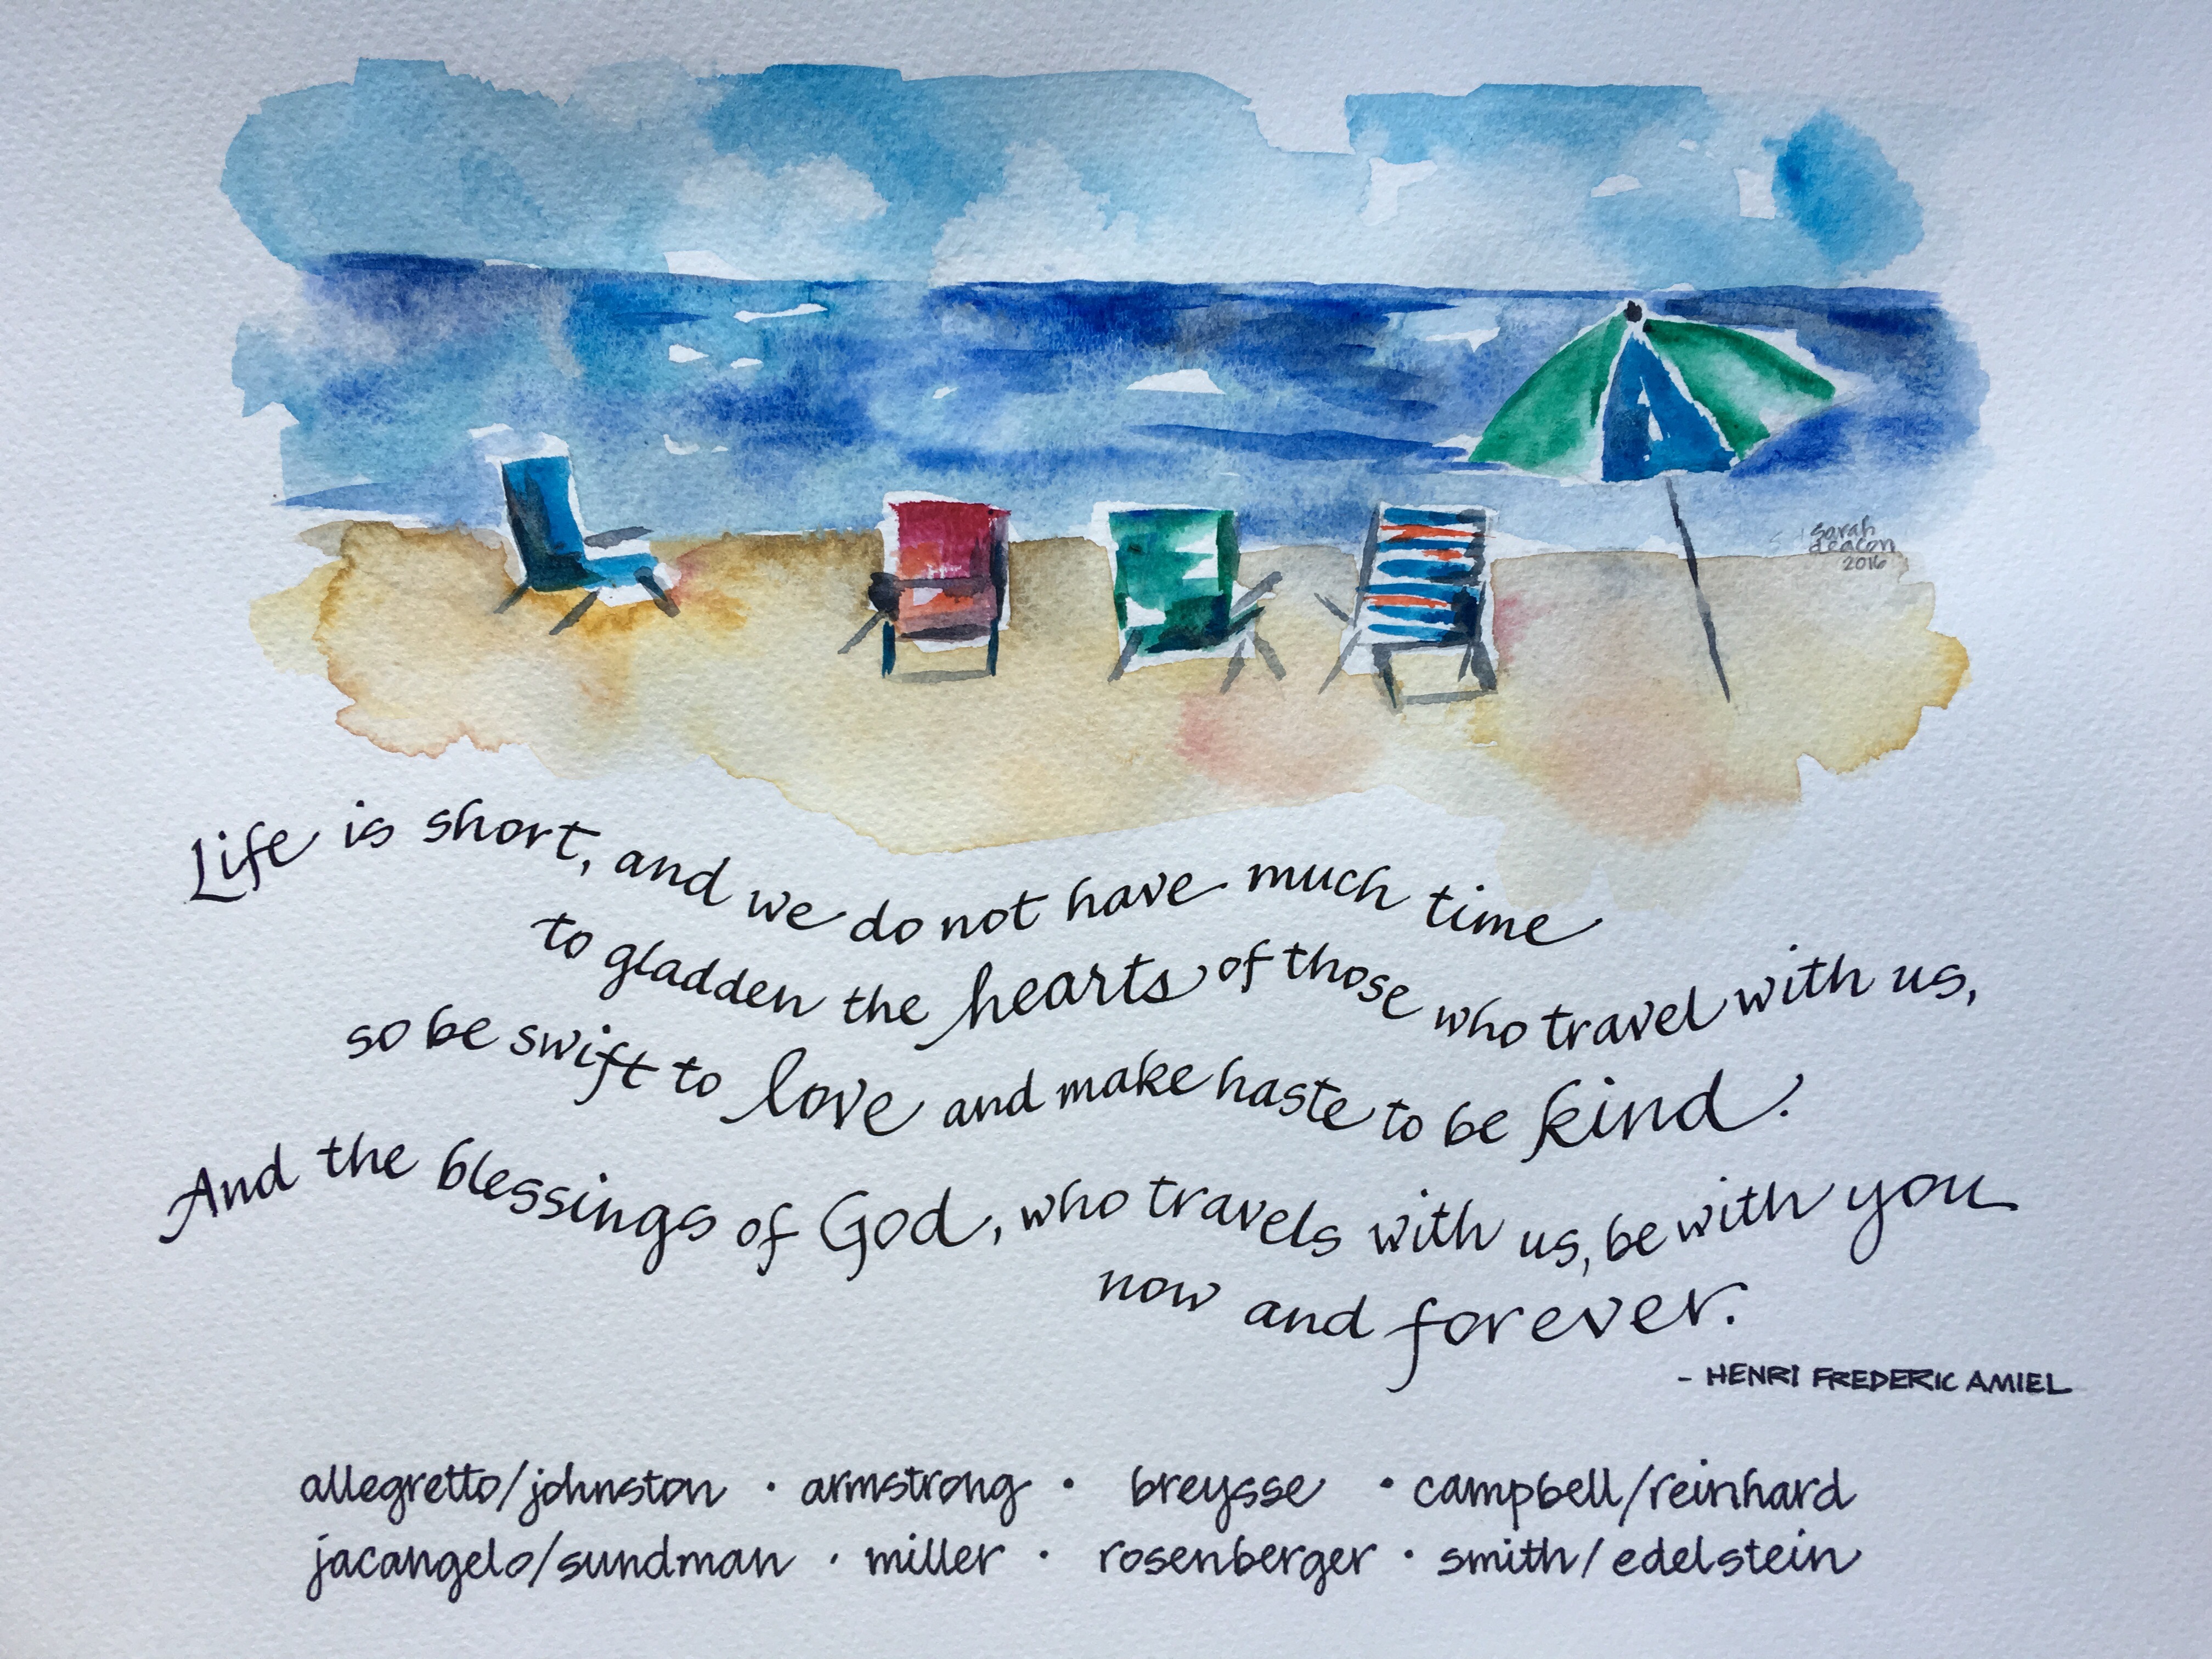 sarah
deacon
2016
Life is short, and we do not have much time
to gladden the hearts of those who travel with us,
so be swift to love and make haste to be kind.
And the blessings of God, who travels with us, be with you
now and forever.
- HENRI FREDERIC AMIEL
allegretto/johnston • armstrong • breysse • campbell/reinhard
jacangelo/sundman • miller • rosenberger • smith/edelstein